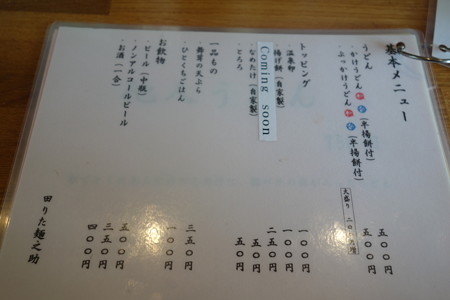 基本メニュー
うどん
・かけうどん 温 冷 (半揚餅付) 五〇〇円
・ぶっかけうどん 温 冷 (半揚餅付) 五〇〇円
大盛り
トッピング
・温泉卵 一〇〇円
・揚げ餅(自家製) 一〇〇円
Coming soon 二五〇円
・なめたけ(自家製) 五〇円
・とろろ 五〇円
一品もの
・舞茸の天ぷら 三五〇円
・ひとくちごはん 一〇〇円
お飲物
・ビール(中瓶) 五〇〇円
・ノンアルコールビール 三五〇円
・お酒(一合) 四〇〇円
田りた麺之助